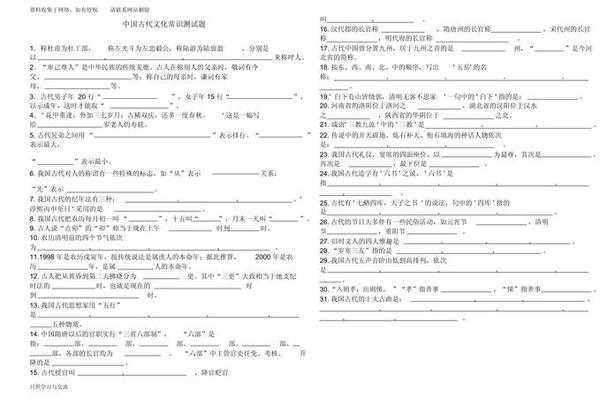 资料收集于网络，如有侵权 请联系网站删除
中国古代文化常识测试题
1．称杜甫为杜工部， 称左光斗为左忠毅公，称陆游为陆放翁 ，分别是
以____、____、____来称呼人。
2．“卑己尊人”是中华民族的传统美德。古人在称别人的父亲时，敬词有令
父、____、____等；称自己的母亲时，谦词有家
母、____、____等。
3．古代男子年 20 行“____”，女子年 15 行“____”，
以示成年，这时才能取“____”。
4．‘花甲重逢，外加三七岁月；古稀双庆，还多一度春秋。 ’这是一幅写
给____岁老人的寿联。
5．古代兄弟之间用 “____”表示排行。“____”
表示最大，
“____”表示最小。
6．我国古代对人的称谓有一些特殊的标志，如“从”表示____关系，
“先”表示____。
7．我国古代的纪年法有三种：____、____、____。‘
淳熙丙申至日’采用的是____
8．我国古代把农历每月初一叫“____”，十五叫“____”，月末一天叫“____”。
9．古人说“点卯”的“卯”相当于现在上午____时到____时。
10．农历清明前的四个节气依次
为____、____、____、____。
11.1998 年是农历戊寅年，按传统说法是属虎人的本命年；据此推算， 2000 年是农
历____年，是属____人的本命年。
12．古人把从黄昏到第二天拂晓分为____更。其中“三更”大致相当于地支纪
时法的____时，也就是现在的____时
到____时。
13．我国古代思想家用“五行”
是____、____、____、____、
____五种物质。
14．中国隋唐以后的官职实行“三省六部制”， “六部”是
指：____部、____部、____部、____部、____部、
____部，各部的长官均为____。“六部”中主管官吏任免、考核、 升
降的是____。
15．古代授官叫____、____、____，降官贬官
只供学习与交流
叫____。
16．汉代郡的长官称____，隋唐州的长官称____，宋代州的长官
称____，明代府的长官称____。
17．古代中国曾分置九州，居于九州之首的是____州，“____”是今河
北省的简称。
18．按东、西、南、北、中的顺序，写出 ‘五岳’的名
称：____、____、____、____、
____。
19.‘白下有山皆绕郭，清明无客不思家 ’一句中的‘白下’指的是：____。
20．河南省的洛阳位于洛河之____，湖北省的汉阳位于汉水
之____，陕西省的华阴位于____之北。
21．成语‘三教九流’中的‘三教’是指____、____、____。
22．传说中的开天辟地、炼石补天、衔石填海的神话人物依次
是：____、____、____。
23．我国古代礼仪，宴席的四面座位，以____为最尊，其次是____，
再次是____，最下位是____。
24．我国古代造字有‘六书’之说，‘六书’是
指____、____、____、____、____、
____。
25．古代有‘七略四库，天子之书’的说法，句中的‘四库’指的
是____、____、____、____。
26．古代的节日大多伴有一些民俗活动，如元宵节____，清明
节____，重阳节____。
27．旧时文人的四大雅趣是____、____、____、____
28．“岁寒三友”指的是____、____、____。
29．我国古代五声音阶由低到高排列，依次
是____、____、____、____、
____。
30．“入则孝，出则悌。”“孝”指善事____，“悌”指善事____。
31．我国古代的十大名曲是：____、____、____、